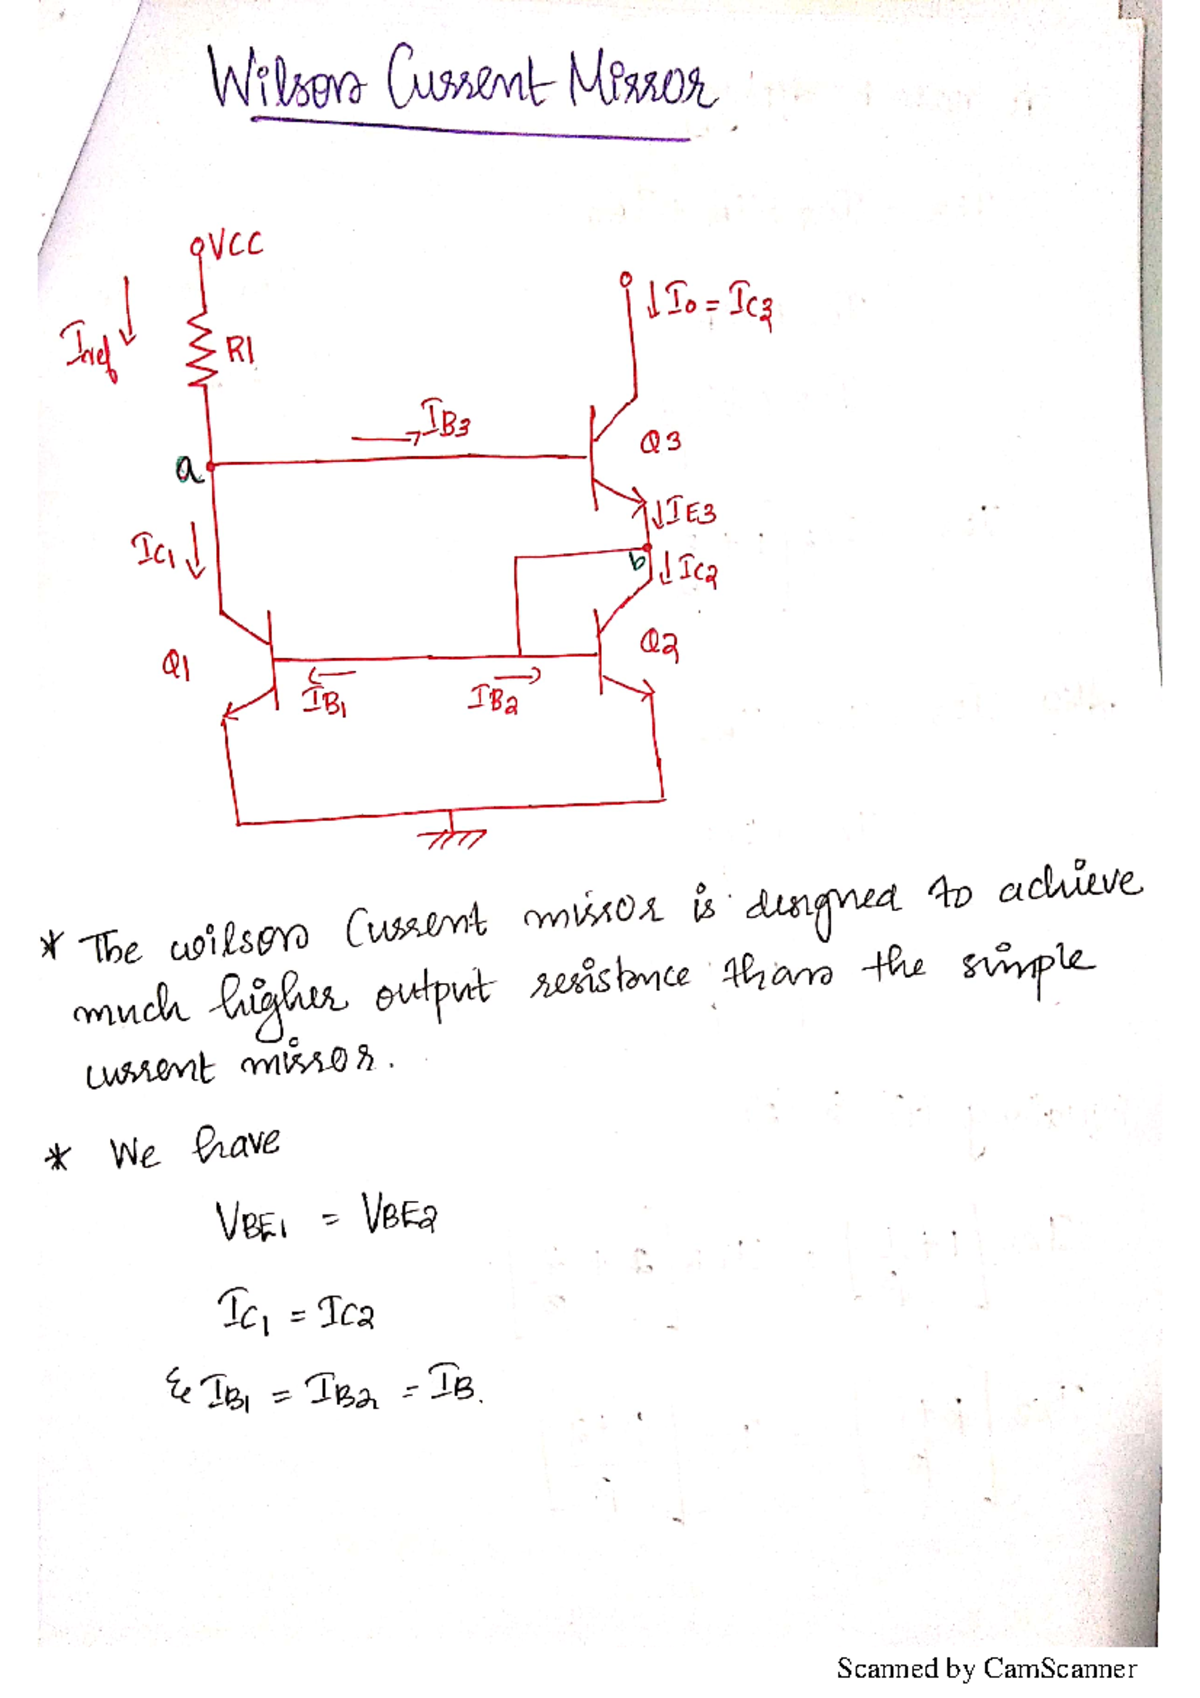 Wilson Current Mirror
VCC
Iref
R1
↓ Io = IC3
IB3
Q3
a
↓ IE3
IC1
b
↓ IC2
Q1
Q2
IB1
IB2
* The wilson Current mirror is designed to achieve
much higher output resistance than the simple
current mirror.
* We have
VBE1 = VBE2
IC1 = IC2
& IB1 = IB2 = IB.
Scanned by CamScanner